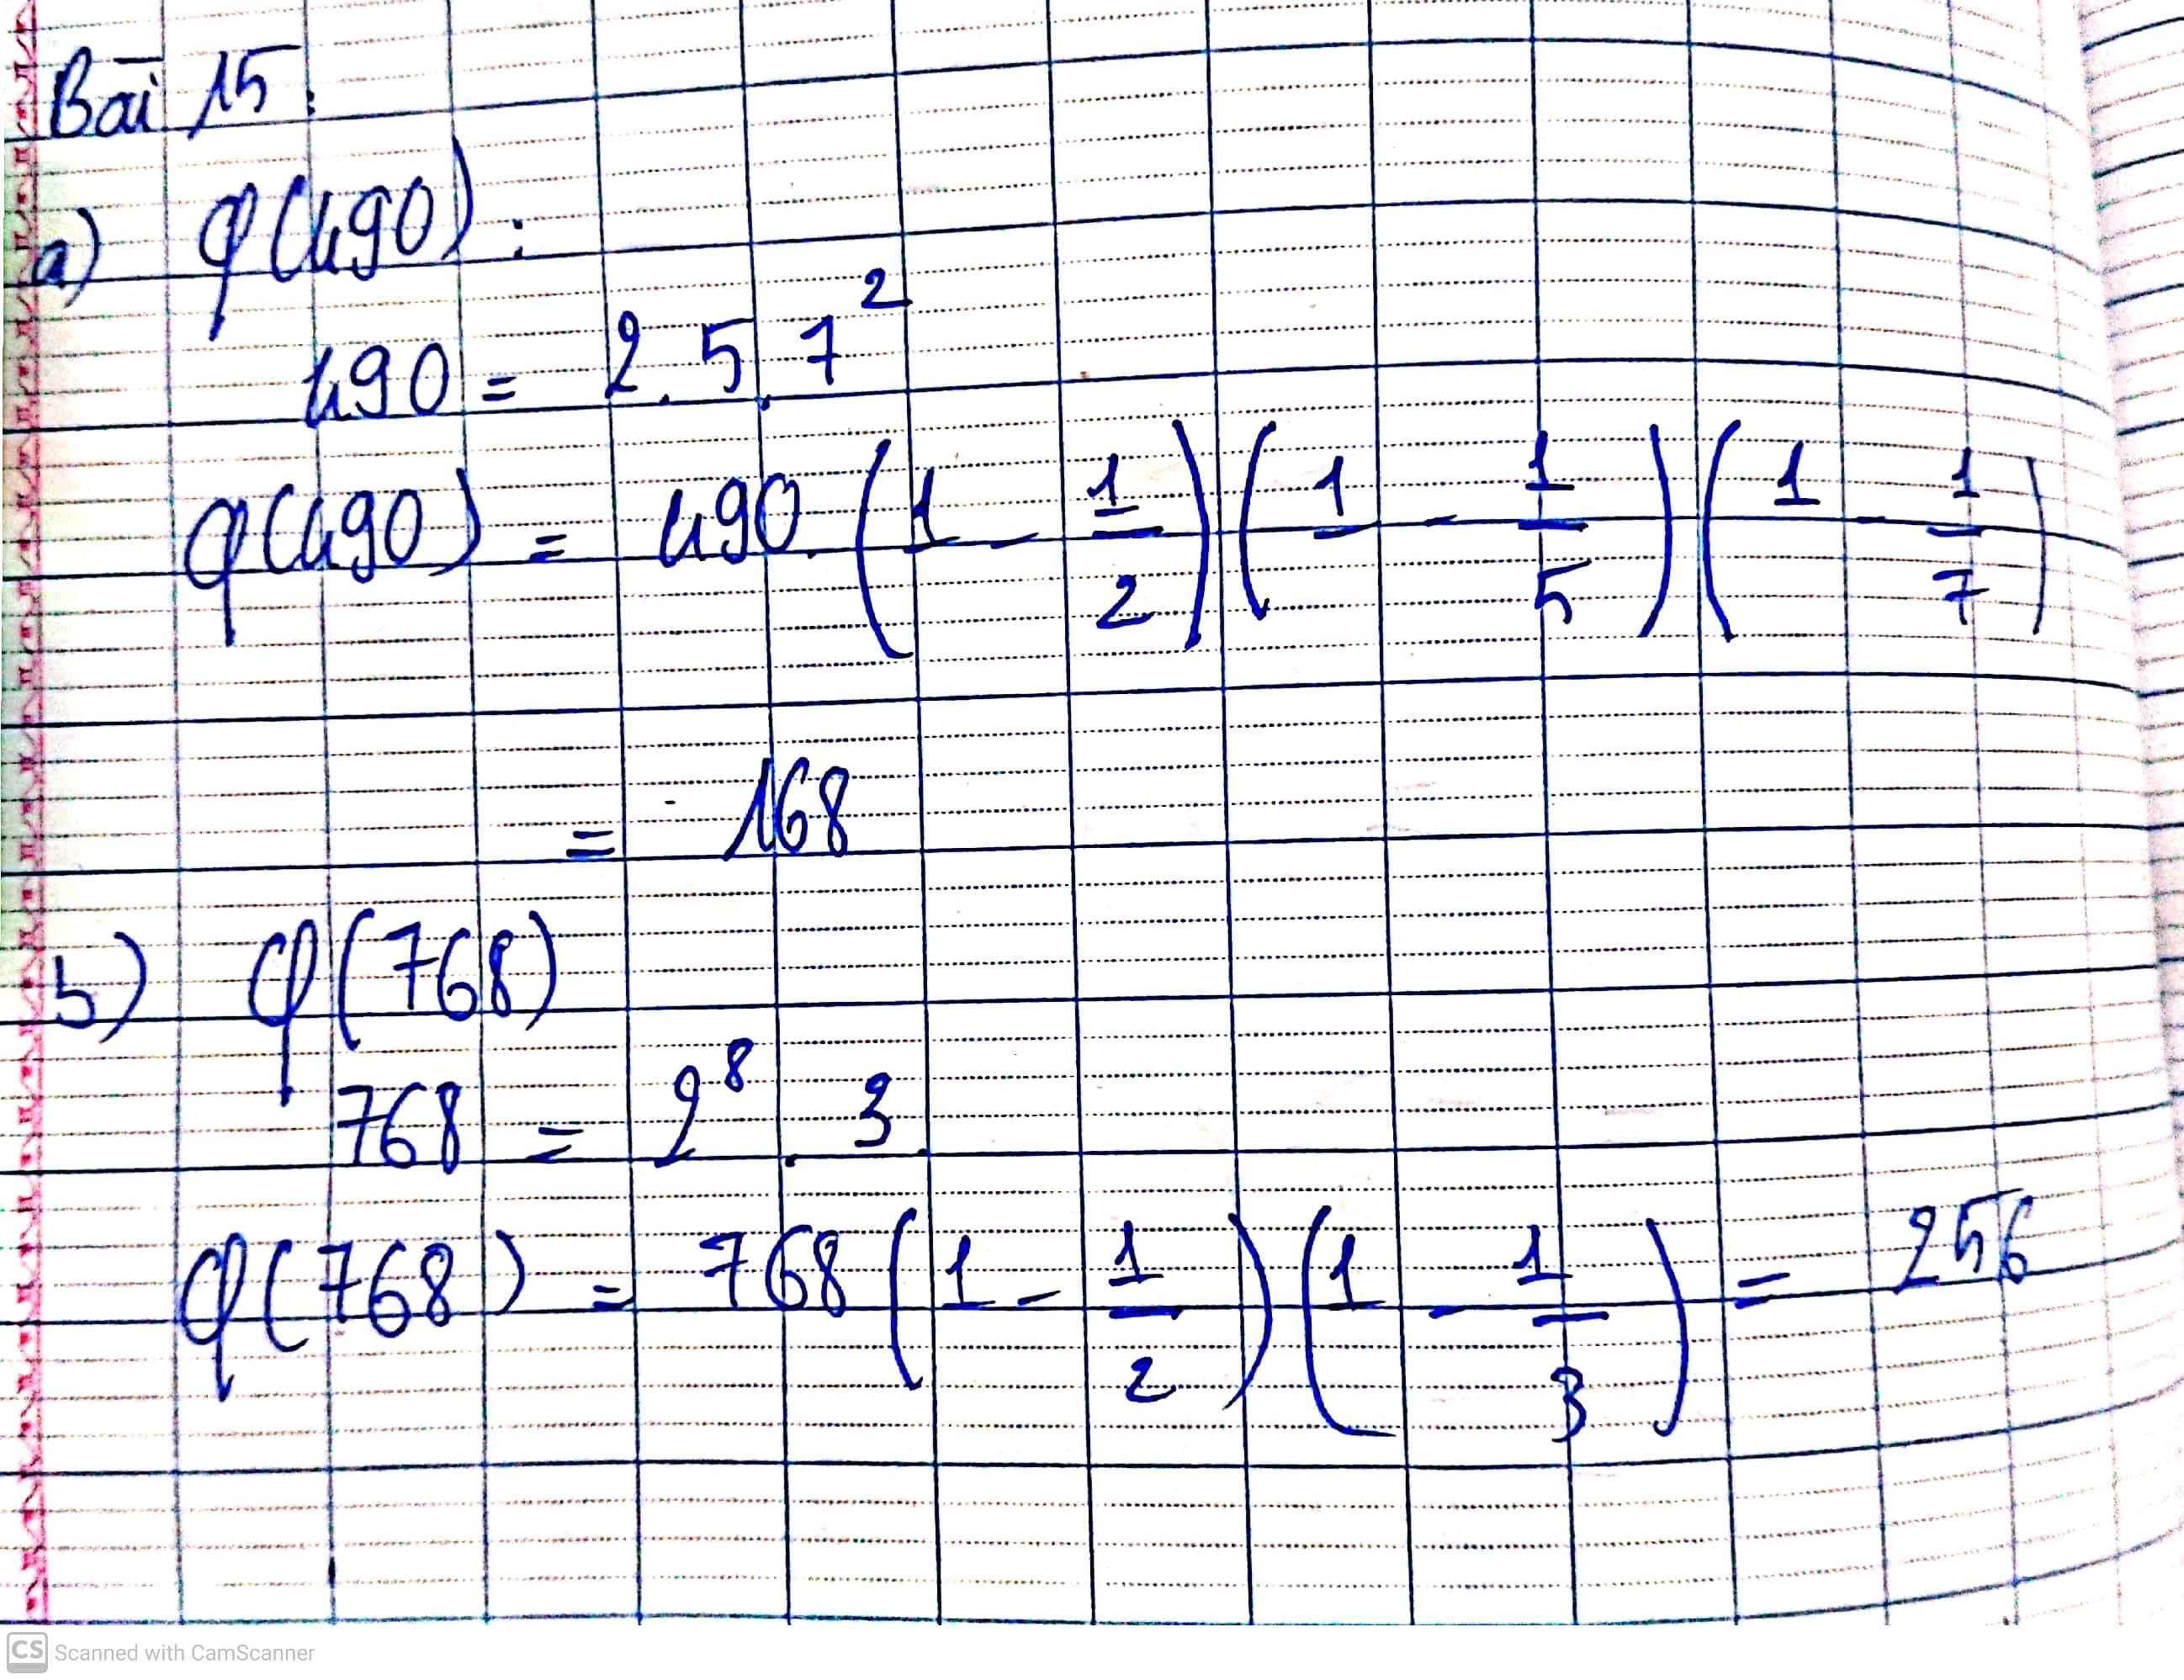 Bài 15:
a) φ(490):
490 = 2.5.7²
φ(490) = 490.(1 - 1/2)(1 - 1/5)(1 - 1/7)
= 168
b) φ(768)
768 = 2⁸.3
φ(768) = 768(1 - 1/2)(1 - 1/3) = 256
CS Scanned with CamScanner